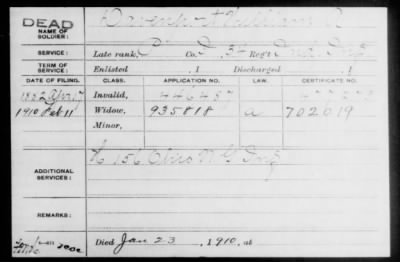 DEAD
NAME OF SOLDIER: Davenport William
SERVICE: Late rank, Co. 34 Reg't Ind. Inf
TERM OF SERVICE: Enlisted , 1 Discharged , 1
DATE OF FILING. CLASS. APPLICATION NO. LAW. CERTIFICATE NO.
Invalid,
1910 Feb 11 Widow, 935818 a 702019
Minor,
ADDITIONAL SERVICES: 156 Ohio N G Inf
REMARKS:
Died Jan 23 , 1910, at